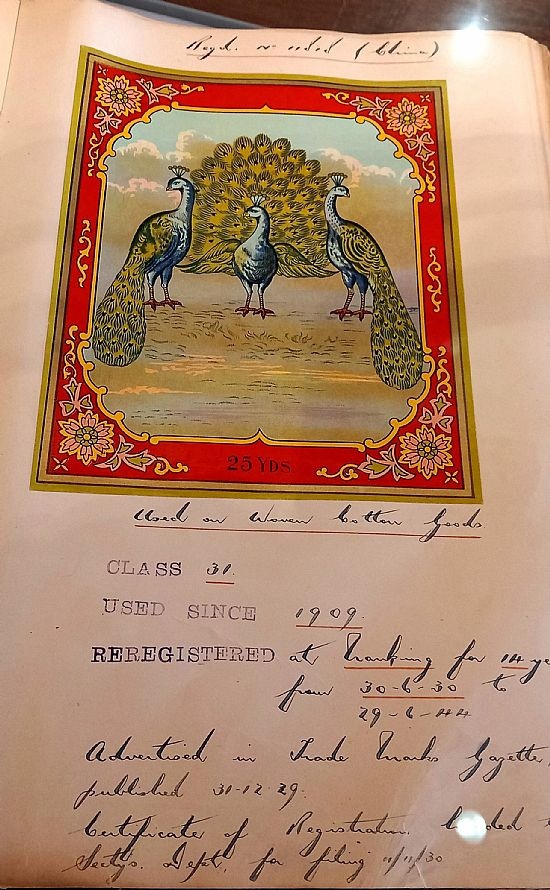 Regd. No 11818 (China)
25 YDS.
Used on Woven Cotton Goods
CLASS 31.
USED SINCE 1909.
REREGISTERED at Nanking for 14 ye
from 30-6-30 to
29-6-44
Advertised in Trade Marks Gazette,
published 31-12-29.
Certificate of Registration handed
Secty's. Dept. for filing 11/11/30